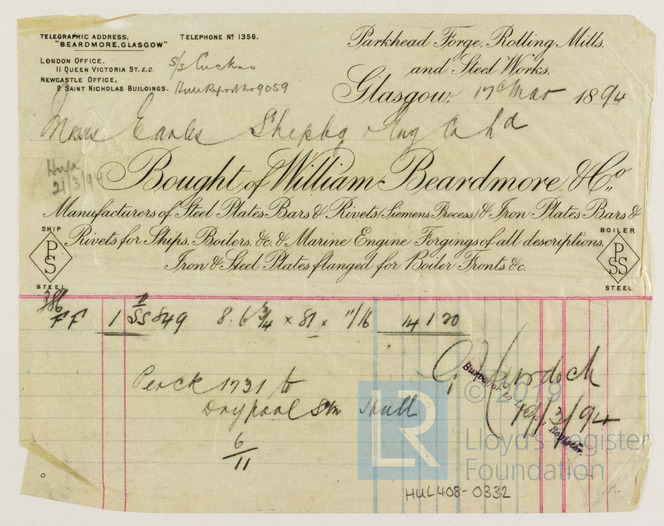 TELEGRAPHIC ADDRESS.
"BEARDMORE, GLASGOW"
TELEPHONE Nº 1356.
LONDON OFFICE,
11 QUEEN VICTORIA ST. E.C.
NEWCASTLE OFFICE,
2 SAINT NICHOLAS BUILDINGS.
S/S Cuckoo
Hull Report No 9059
Parkhead Forge, Rolling Mills,
and Steel Works.
Glasgow, 17th Mar 1894
Messrs Earles Shipbg & Eng Co Ld
Hull
21/3/94
Bought of William Beardmore, & Co.,
Manufacturers of Steel Plates Bars & Rivets (Siemens Process) & Iron Plates Bars &
Rivets for Ships, Boilers, &c. & Marine Engine Forgings of all descriptions.
Iron & Steel Plates flanged for Boiler Fronts &c.
SHIP
PS
STEEL
BOILER
PSS
STEEL
FF 1 SS 849 8.6 3/4 × 81 × 11/16 14 1 20
1731 to
Drypool Stn Hull
6
11
G Murdoch
Surveyor to Lloyd's Register.
/3/94
LR
© 2019
Lloyd's Register
Foundation
HUL408-0332